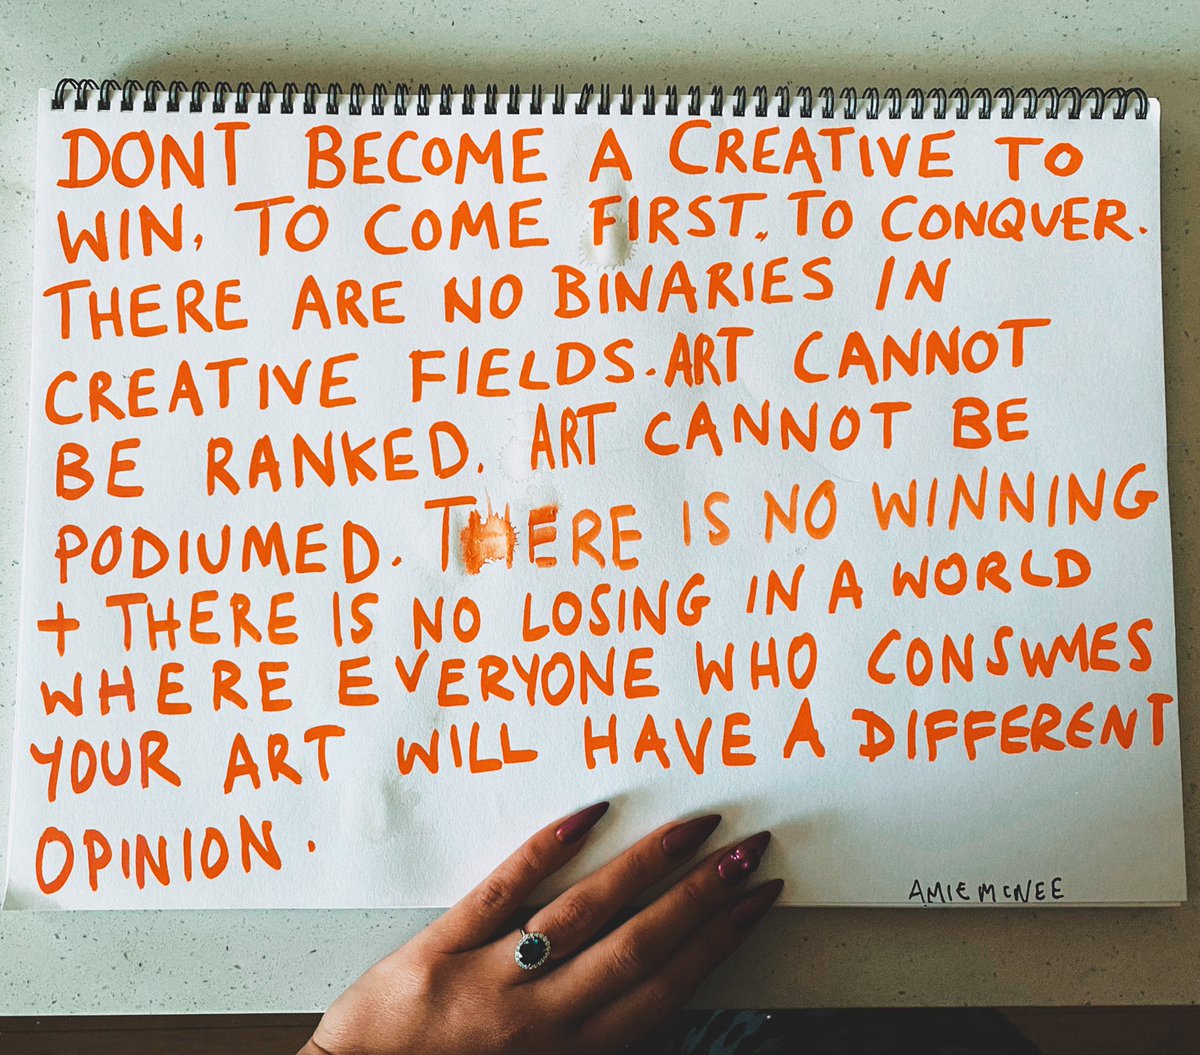 DONT BECOME A CREATIVE TO
WIN, TO COME FIRST, TO CONQUER.
THERE ARE NO BINARIES IN
CREATIVE FIELDS. ART CANNOT
BE RANKED. ART CANNOT BE
PODIUMED. THERE IS NO WINNING
+ THERE IS NO LOSING IN A WORLD
WHERE EVERYONE WHO CONSUMES
YOUR ART WILL HAVE A DIFFERENT
OPINION.
AMIE MCNEE